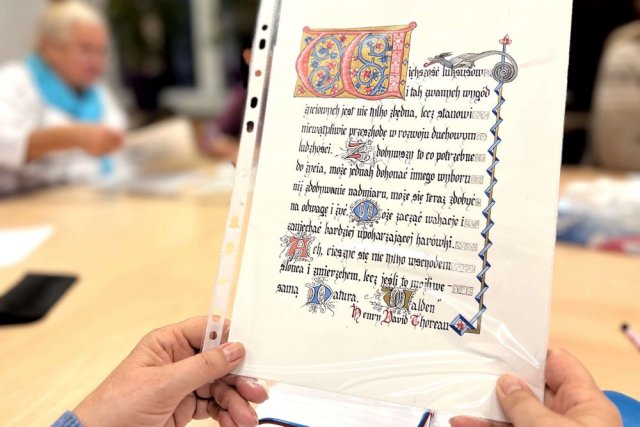 Większość luksusów
i tak zwanych wygód
życiowych jest nie tylko zbędna, lecz stanowi
niewątpliwie przeszkodę w rozwoju duchowym
ludzkości. Zdobywszy to co potrzebne
do życia, może jednak dokonać innego wyboru
niż zdobywanie nadmiaru, może się teraz zdobyć
na odwagę i żyć. Może zacząć wakacje i
zaniechać bardziej upokarzającej harówki.
Ach, cieszyć się nie tylko wschodem
słońca i zmierzchem, lecz jeśli to możliwe -
samą Naturą. "Walden"
Henry David Thoreau